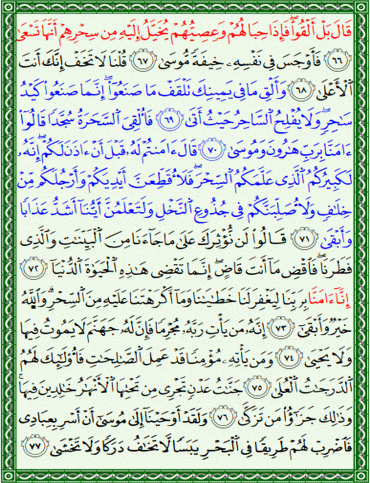 قَالَ بَلْ أَلْقُوا۟ ۖ فَإِذَا حِبَالُهُمْ وَعِصِيُّهُمْ يُخَيَّلُ إِلَيْهِ مِن سِحْرِهِمْ أَنَّهَا تَسْعَىٰ
﴿٦٦﴾ فَأَوْجَسَ فِى نَفْسِهِۦ خِيفَةً مُّوسَىٰ ﴿٦٧﴾ قُلْنَا لَا تَخَفْ إِنَّكَ أَنتَ
ٱلْأَعْلَىٰ ﴿٦٨﴾ وَأَلْقِ مَا فِى يَمِينِكَ تَلْقَفْ مَا صَنَعُوٓا۟ ۖ إِنَّمَا صَنَعُوا۟ كَيْدُ
سَـٰحِرٍ ۖ وَلَا يُفْلِحُ ٱلسَّاحِرُ حَيْثُ أَتَىٰ ﴿٦٩﴾ فَأُلْقِىَ ٱلسَّحَرَةُ سُجَّدًا قَالُوٓا۟
ءَامَنَّا بِرَبِّ هَـٰرُونَ وَمُوسَىٰ ﴿٧٠﴾ قَالَ ءَامَنتُمْ لَهُۥ قَبْلَ أَنْ ءَاذَنَ لَكُمْ ۖ إِنَّهُۥ
لَكَبِيرُكُمُ ٱلَّذِى عَلَّمَكُمُ ٱلسِّحْرَ ۖ فَلَأُقَطِّعَنَّ أَيْدِيَكُمْ وَأَرْجُلَكُم مِّنْ
خِلَـٰفٍ وَلَأُصَلِّبَنَّكُمْ فِى جُذُوعِ ٱلنَّخْلِ وَلَتَعْلَمُنَّ أَيُّنَآ أَشَدُّ عَذَابًا
وَأَبْقَىٰ ﴿٧١﴾ قَالُوا۟ لَن نُّؤْثِرَكَ عَلَىٰ مَا جَآءَنَا مِنَ ٱلْبَيِّنَـٰتِ وَٱلَّذِى
فَطَرَنَا ۖ فَٱقْضِ مَآ أَنتَ قَاضٍ ۖ إِنَّمَا تَقْضِى هَـٰذِهِ ٱلْحَيَوٰةَ ٱلدُّنْيَآ ﴿٧٢﴾
إِنَّآ ءَامَنَّا بِرَبِّنَا لِيَغْفِرَ لَنَا خَطَـٰيَـٰنَا وَمَآ أَكْرَهْتَنَا عَلَيْهِ مِنَ ٱلسِّحْرِ ۗ وَٱللَّهُ
خَيْرٌ وَأَبْقَىٰٓ ﴿٧٣﴾ إِنَّهُۥ مَن يَأْتِ رَبَّهُۥ مُجْرِمًا فَإِنَّ لَهُۥ جَهَنَّمَ لَا يَمُوتُ فِيهَا
وَلَا يَحْيَىٰ ﴿٧٤﴾ وَمَن يَأْتِهِۦ مُؤْمِنًا قَدْ عَمِلَ ٱلصَّـٰلِحَـٰتِ فَأُو۟لَـٰٓئِكَ لَهُمُ
ٱلدَّرَجَـٰتُ ٱلْعُلَىٰ ﴿٧٥﴾ جَنَّـٰتُ عَدْنٍ تَجْرِى مِن تَحْتِهَا ٱلْأَنْهَـٰرُ خَـٰلِدِينَ فِيهَا ۚ
وَذَٰلِكَ جَزَآءُ مَن تَزَكَّىٰ ﴿٧٦﴾ وَلَقَدْ أَوْحَيْنَآ إِلَىٰ مُوسَىٰٓ أَنْ أَسْرِ بِعِبَادِى
فَٱضْرِبْ لَهُمْ طَرِيقًا فِى ٱلْبَحْرِ يَبَسًا لَّا تَخَـٰفُ دَرَكًا وَلَا تَخْشَىٰ ﴿٧٧﴾